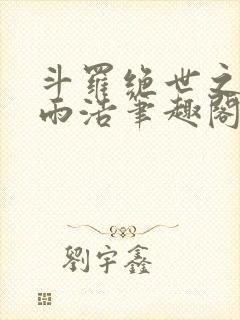 斗羅絕世之
雨浩筆趣閣
劉宇鑫